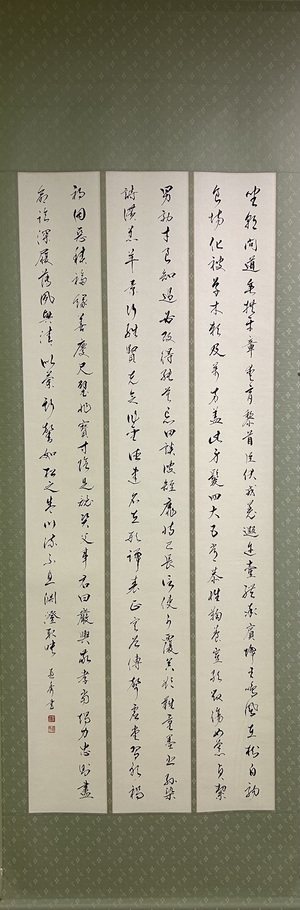 坐朝問道垂拱平章愛育黎首臣伏戎羌遐邇壹體率賓歸王鳴鳳在樹白駒
食場化被草木賴及萬方蓋此身髮四大五常恭惟鞠養豈敢毀傷女慕貞絜
男效才良知過必改得能莫忘罔談彼短靡恃己長信使可覆器欲難量墨悲絲染
詩讚羔羊景行維賢克念作聖德建名立形端表正空谷傳聲虛堂習聽
禍因惡積福緣善慶尺璧非寶寸陰是競資父事君曰嚴與敬孝當竭力忠則盡
命臨深履薄夙興溫凊似蘭斯馨如松之盛川流不息淵澄取映